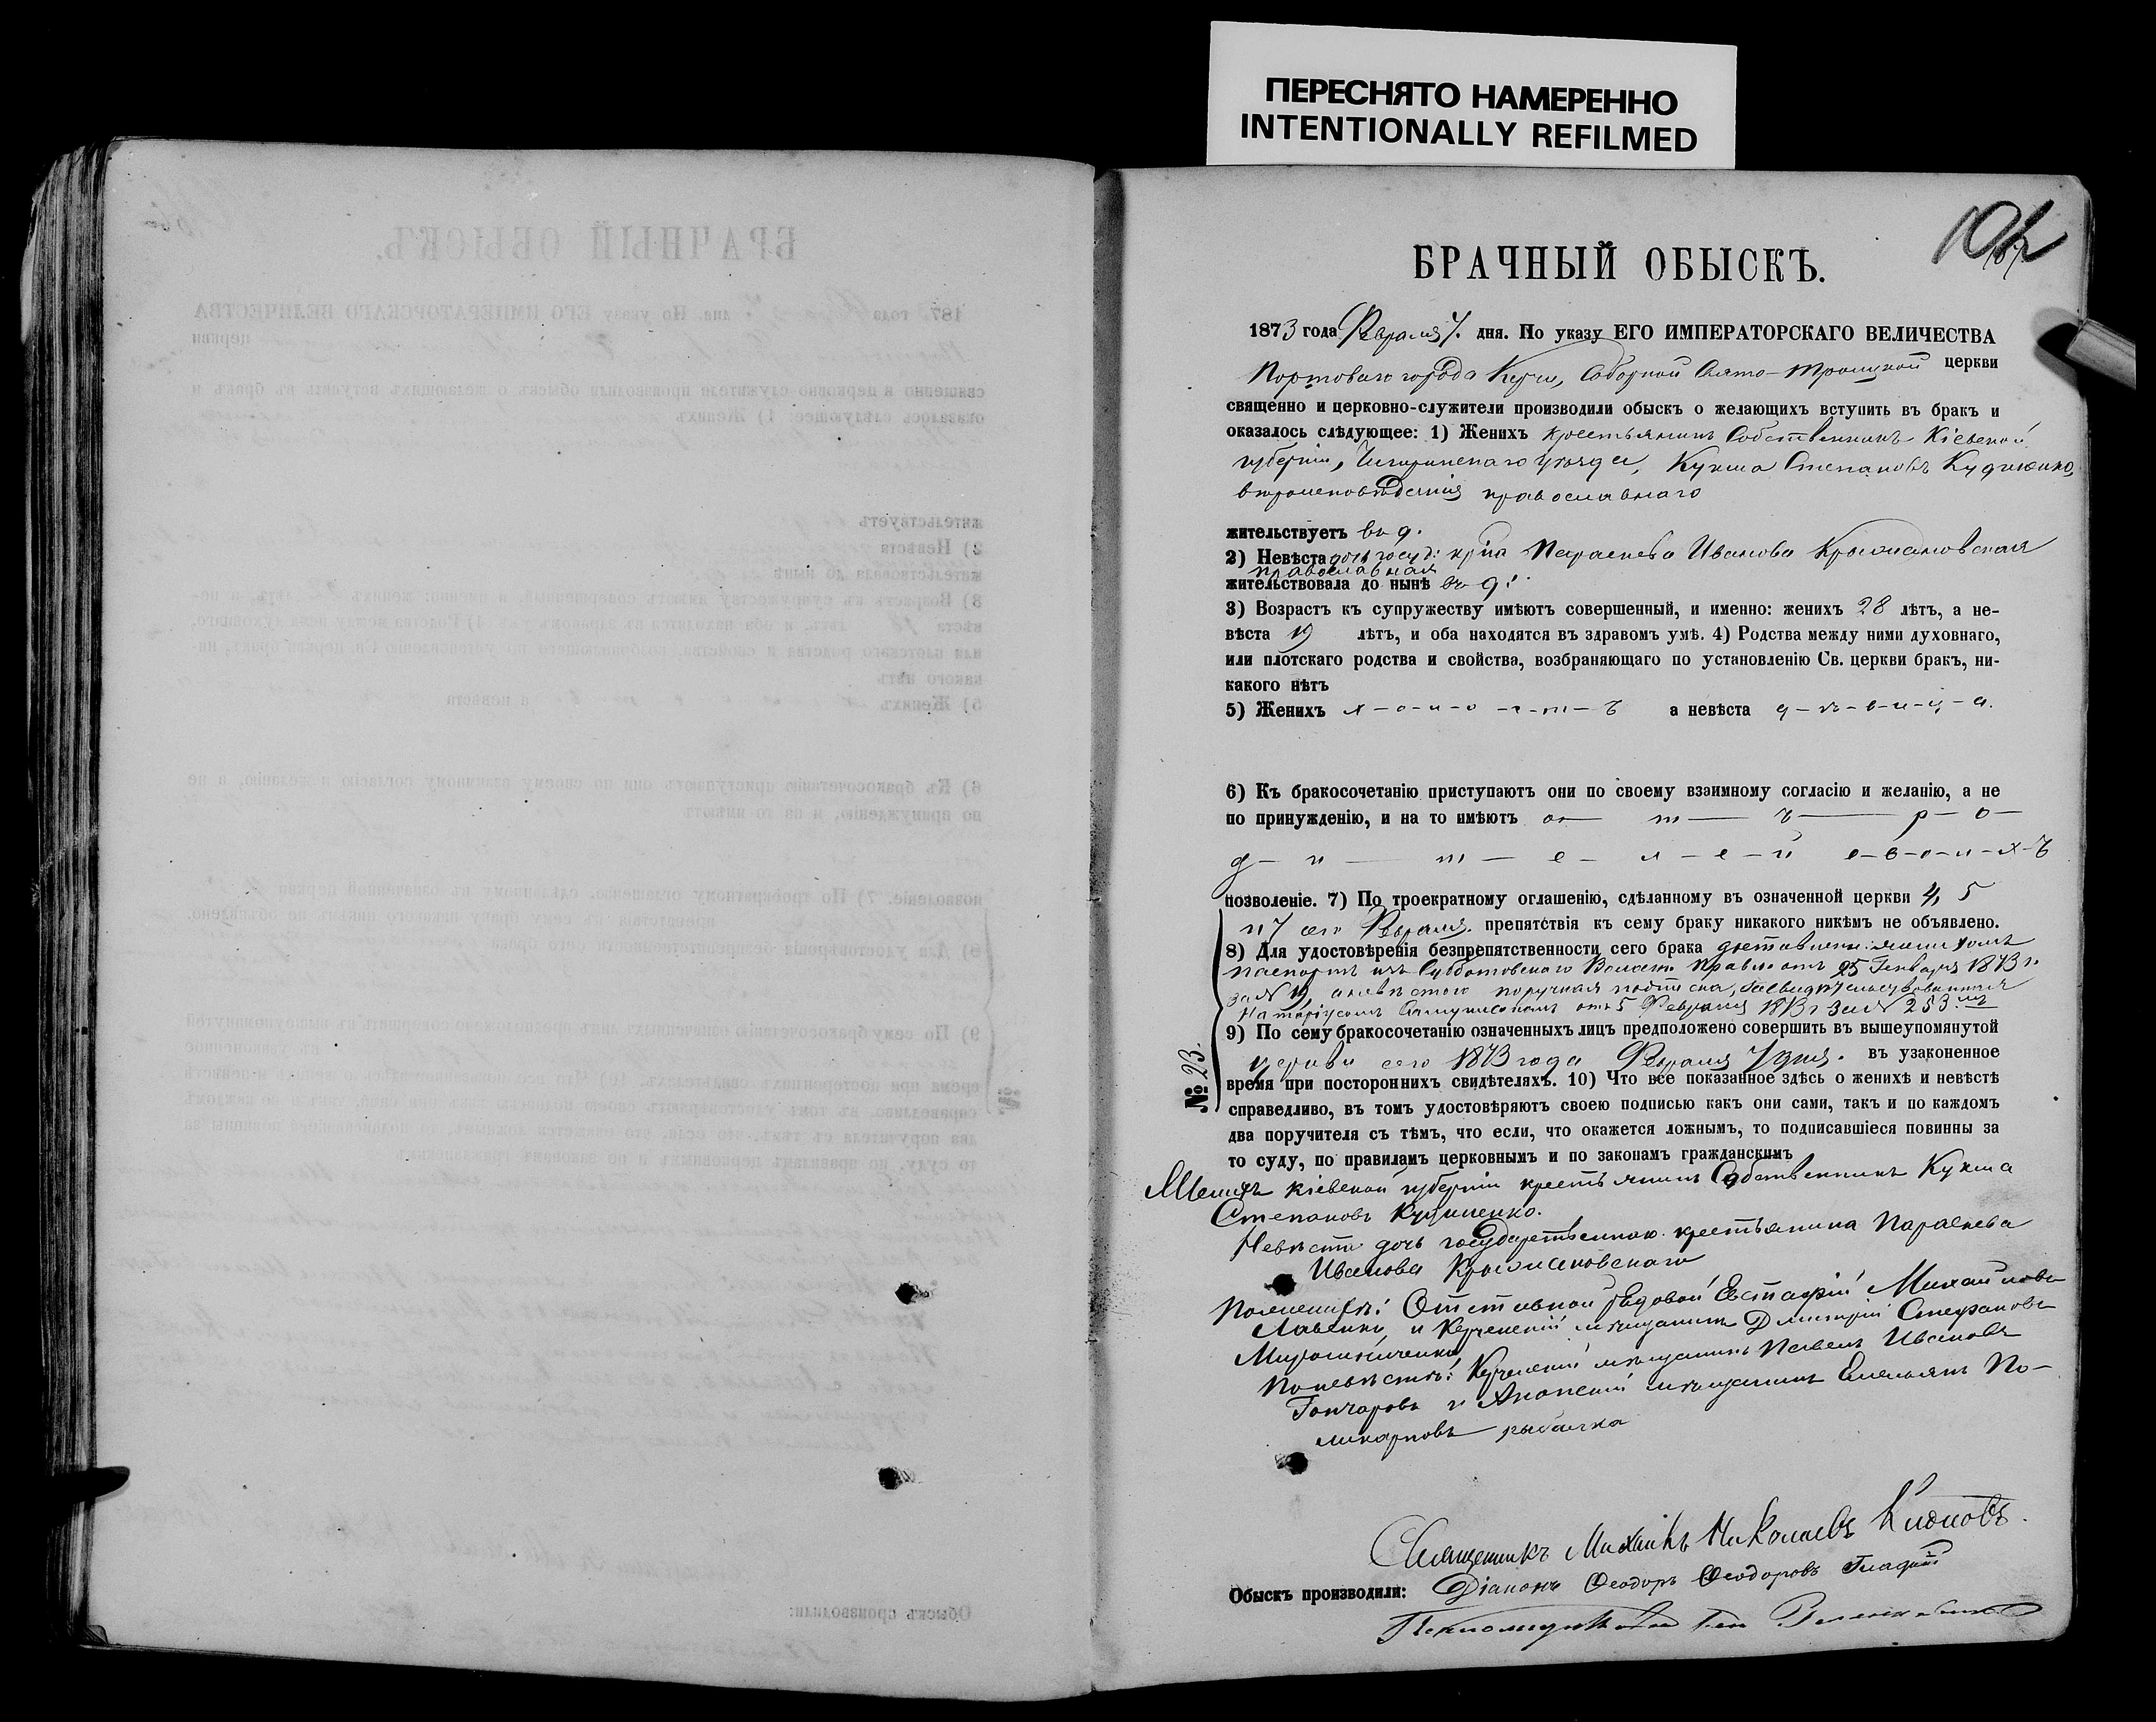 ПЕРЕСНЯТО НАМЕРЕННО
INTENTIONALLY REFILMED
БРАЧНЫЙ ОБЫСКЪ.
1873 года Февраля 7. дня. По указу ЕГО ИМПЕРАТОРСКАГО ВЕЛИЧЕСТВА
Портоваго города Керчи, Соборной Свято-Троицкой церкви
священно и церковно-служители производили обыскъ о желающихъ вступить въ бракъ и
оказалось слѣдующее: 1) Женихъ крестьянинъ Собственникъ Кіевской
губерніи, Чигиринскаго уѣзда, Кузма Степановъ
вѣроисповѣданія православнаго
жительствуетъ въ д.
2) Невѣста дочь госуд: Параскева Иванова Крыжановская
православная
жительствовала до нынѣ въ д:
3) Возрастъ къ супружеству имѣютъ совершенный, и именно: женихъ 28 лѣтъ, а не-
вѣста 19 лѣтъ, и оба находятся въ здравомъ умѣ. 4) Родства между ними духовнаго,
или плотскаго родства и свойства, возбраняющаго по установленію Св. церкви бракъ, ни-
какого нѣтъ
5) Женихъ х-о-л-о-с-т-ъ а невѣста д-ѣ-в-и-ц-а.
6) Къ бракосочетанію приступаютъ они по своему взаимному согласію и желанію, а не
по принужденію, и на то имѣютъ о— т— ъ— р— о—
д— и— т— е— л— е— й с-в-о-и-х-ъ
позволеніе. 7) По троекратному оглашенію, сдѣланному въ означенной церкви 4, 5
и 7 сего Февраля. препятствія къ сему браку никакого никѣмъ не объявлено.
8) Для удостовѣренія безпрепятственности сего брака доставлены: женихомъ
паспортъ изъ Субботовскаго Волост. Правл. отъ 25 Генваря 1873 г.
за N 19, а невѣстою поручная подписка, засвидѣтельствованная
Натаріусомъ отъ 5 Февраля 1873 г за N 253.мъ
9) По сему бракосочетанію означенныхъ лицъ предположено совершить въ вышеупомянутой
церкви сего 1873 года Февраля 7 дня. въ узаконенное
№ 23.
время при постороннихъ свидѣтеляхъ. 10) Что все показанное здѣсь о женихѣ и невѣстѣ
справедливо, въ томъ удостовѣряютъ своею подписью какъ они сами, такъ и по каждомъ
два поручителя съ тѣмъ, что если, что окажется ложнымъ, то подписавшіеся повинны за
то суду, по правиламъ церковнымъ и по законамъ гражданскимъ
Женихъ кіевской губерніи крестьянинъ Собственникъ Кузма
Степановъ
Невѣста дочь государственнаго крестьянина Параскева
Иванова Крыжановскаго
По женихѣ: Отставной рядовой Евстафій Михайловъ
и Керченскій мѣщанинъ Димитрій Стефановъ
Мирошниченко
По невѣстѣ: Керченскій мѣщанинъ Павелъ Ивановъ
Гончаровъ и Анапскій мѣщанинъ Емельянъ По-
ликарповъ рыбалка
Священникъ Михаилъ Николаевъ
Обыскъ производили: Діаконъ Ѳеодоръ Ѳеодоровъ Гладкій